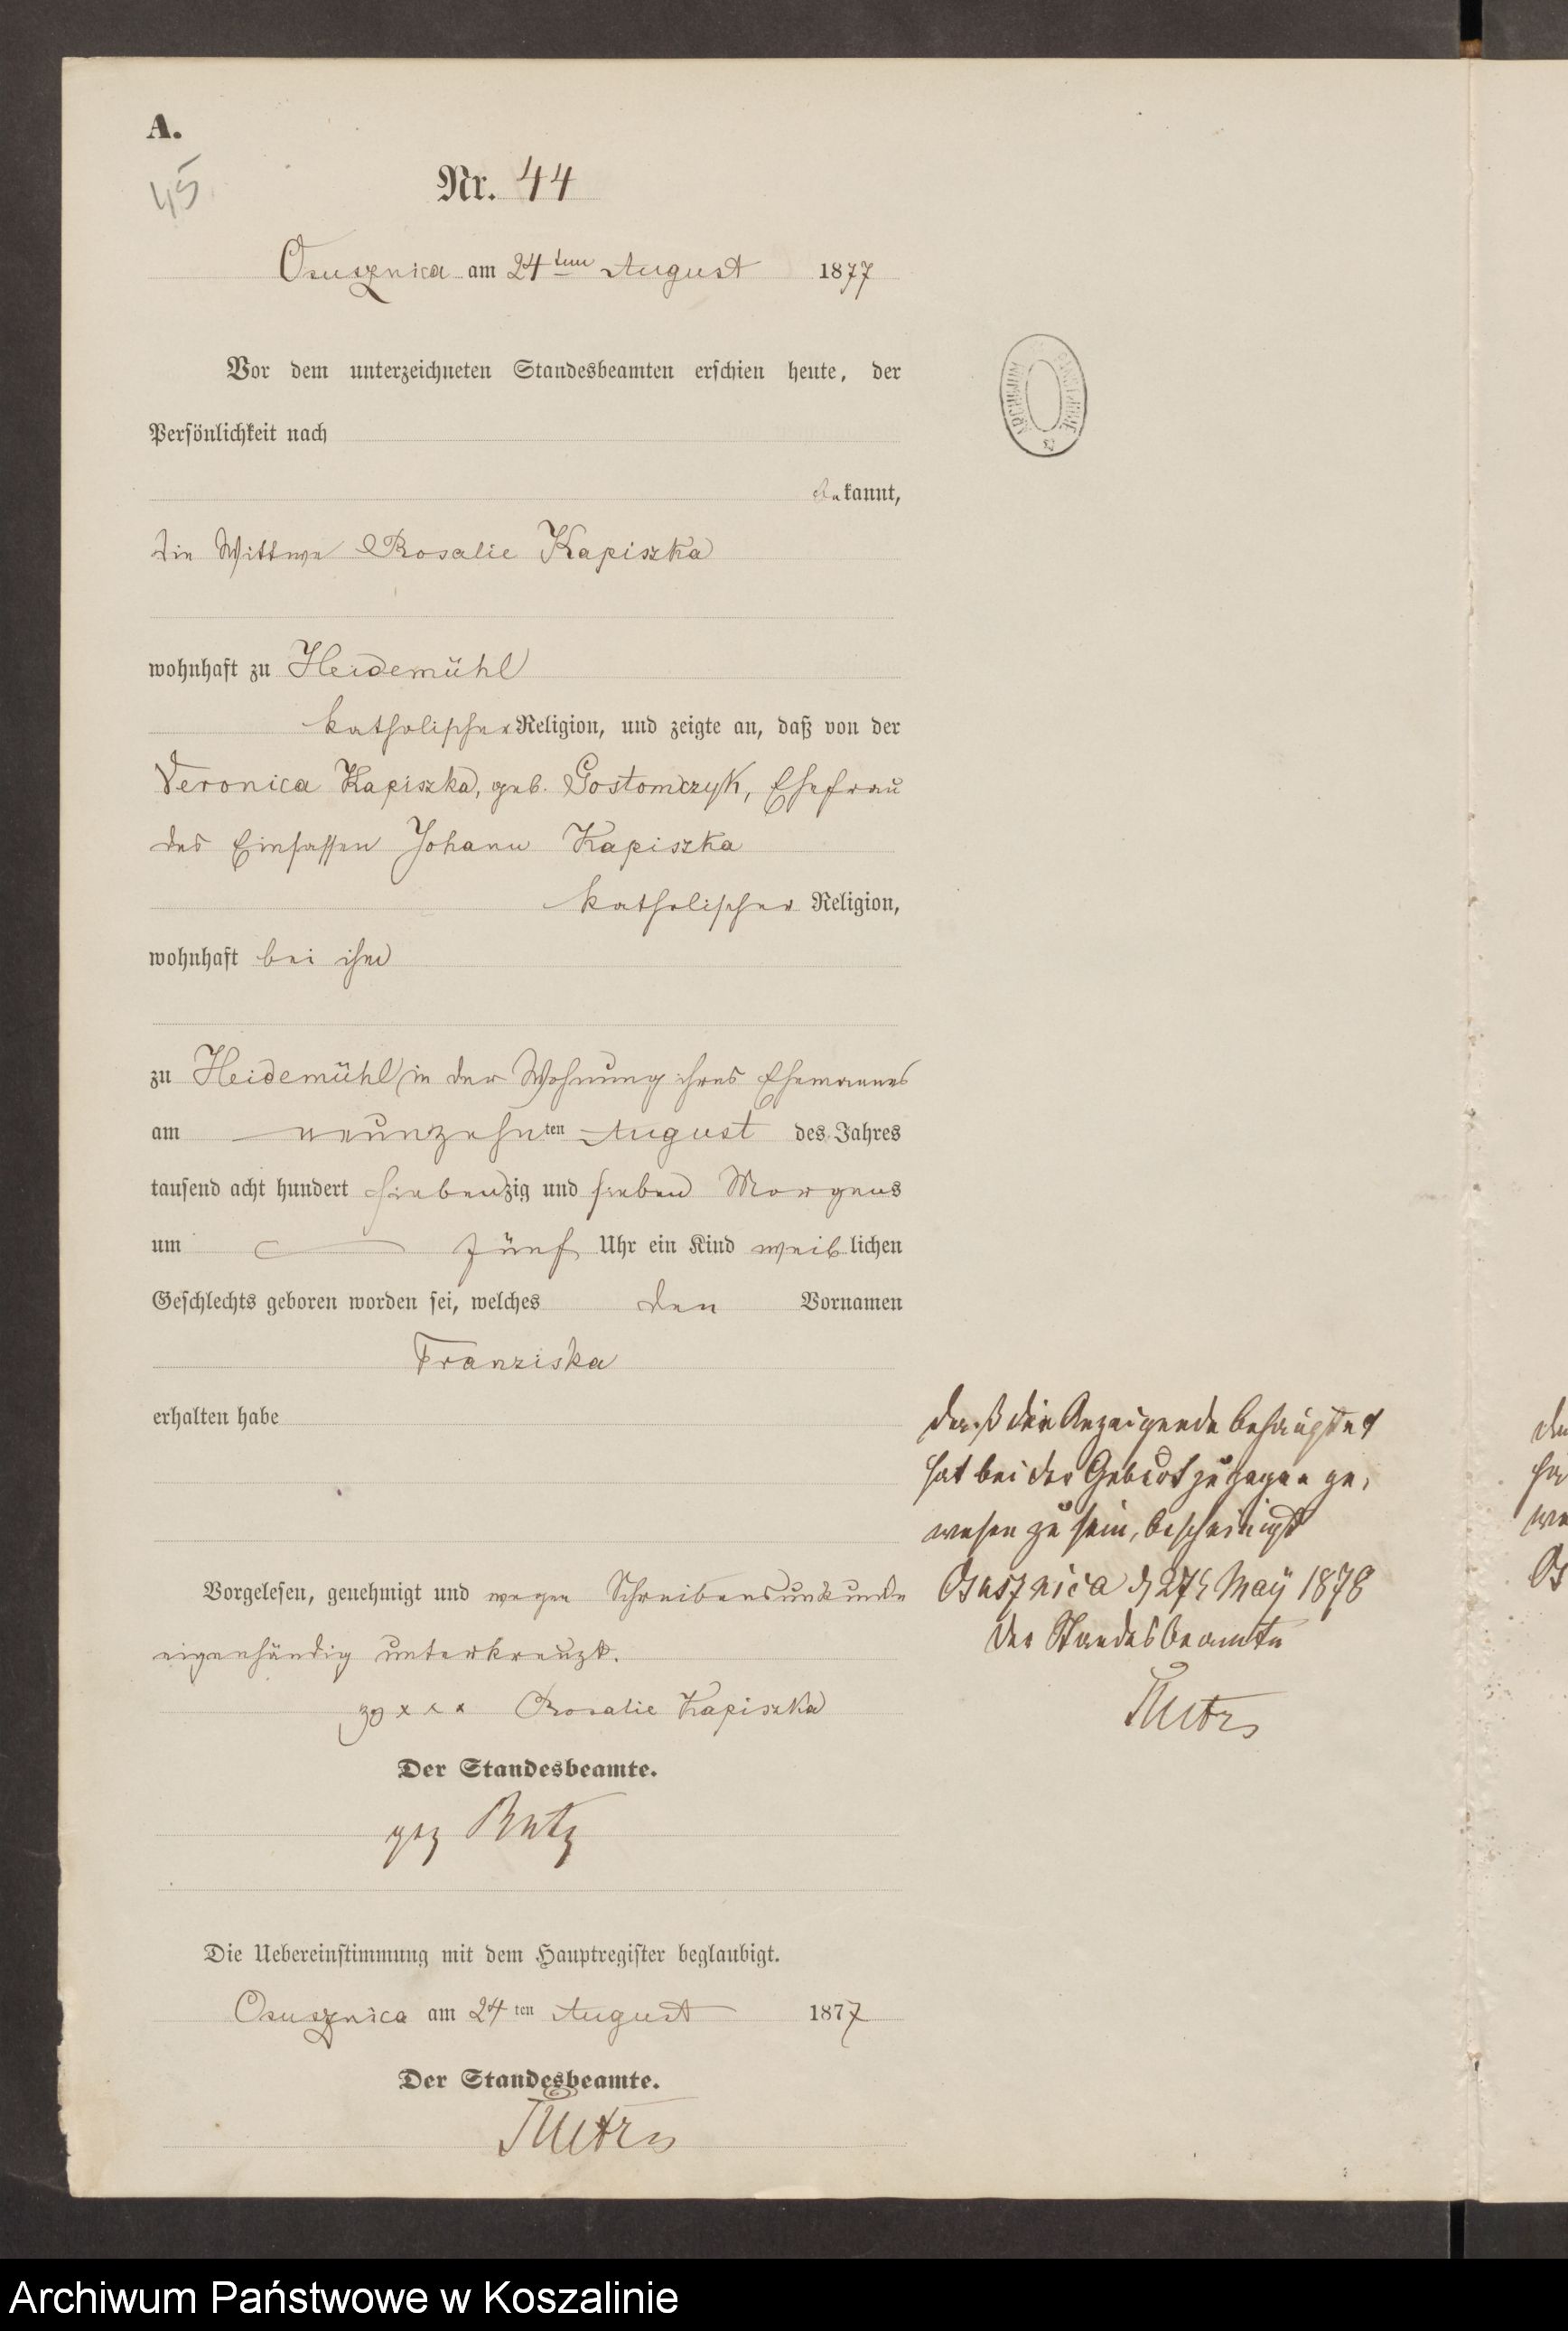 A.
45
Nr. 44
Osusznica am 24ten August 1877
Vor dem unterzeichneten Standesbeamten erschien heute, der
Persönlichkeit nach
bekannt,
die Wittwe Rosalie Kapiszka
wohnhaft zu Heidemühl
katholischer Religion, und zeigte an, daß von der
Veronica Kapiszka, geb. Gostomczyk, Ehefrau
des Einsassen Johann Kapiszka
katholischer Religion,
wohnhaft bei ihm
zu Heidemühl in der Wohnung ihres Ehemannes
am neunzehnten August des Jahres
tausend acht hundert siebenzig und sieben Morgens
um fünf Uhr ein Kind weiblichen
Geschlechts geboren worden sei, welches den Vornamen
Franziska
erhalten habe
Vorgelesen, genehmigt und wegen Schreibensunkunde
eigenhändig unterkreuzt.
xxx Rosalie Kapiszka
Der Standesbeamte.
gez
Die Uebereinstimmung mit dem Hauptregister beglaubigt.
Osusznica am 24ten August 1877
Der Standesbeamte.
daß die Anzeigende behauptet
hat bei der Geburt zugegen ge,
wesen zu sein, bescheinigt
Osusznica d 27t May 1878
Der Standesbeamte
Archiwum Państwowe w Koszalinie